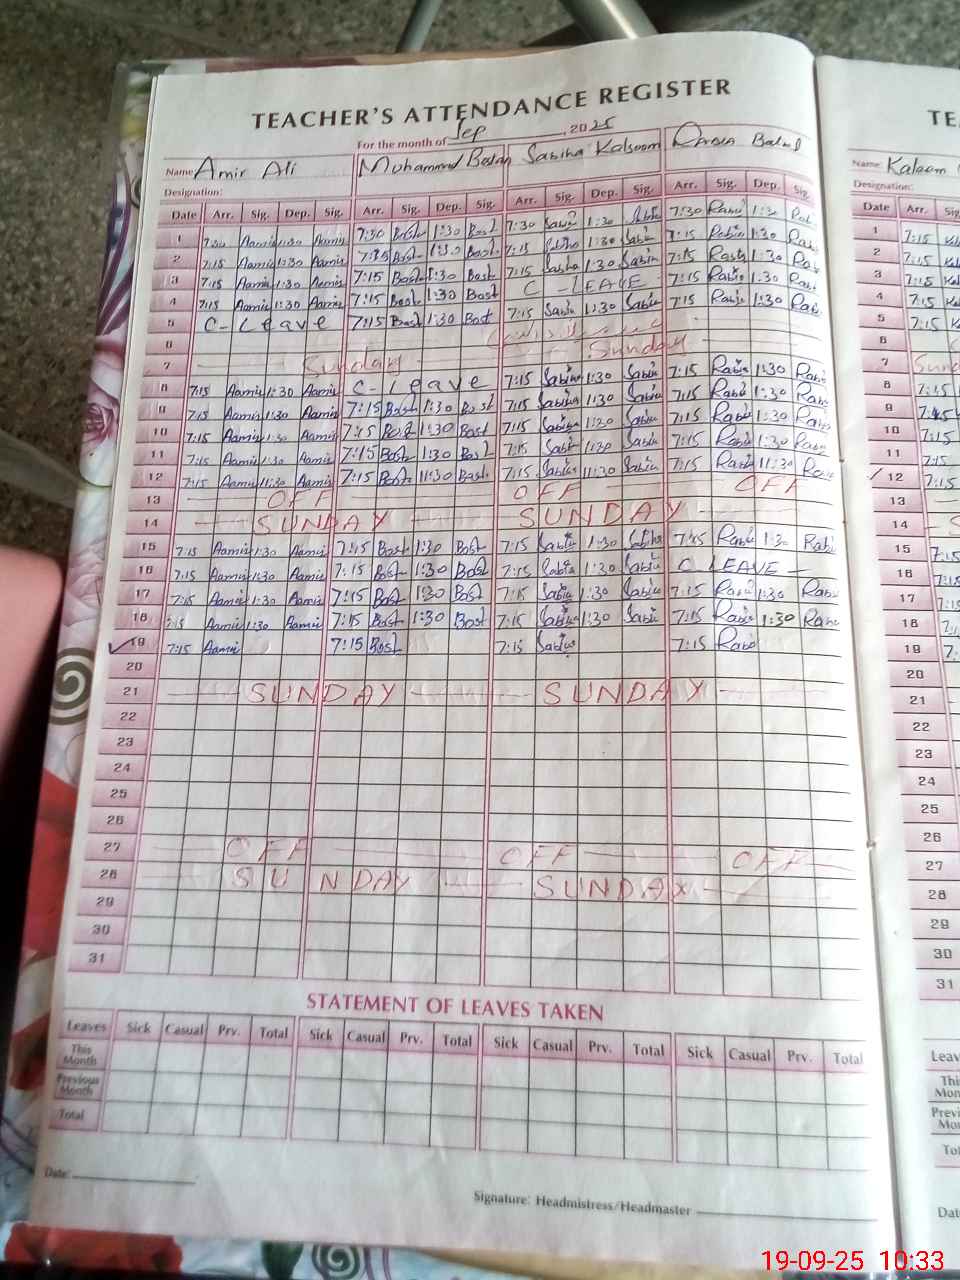 TEACHER'S ATTENDANCE REGISTER
For the month of Sep, 2025
Name Amir Ali Muhammad Sabiha Kalsoom
Designation:
Date Arr. Sig. Dep. Sig. Arr. Sig. Dep. Sig. Arr. Sig. Dep. Sig. Arr. Sig. Dep. Sig.
1 7:30 Aamir 1:30 Aamir 7:30 Bost 1:30 Bost 7:30 Sabi 1:30 7:30 Rabi 1:30 Rabi
2 7:15 Aamir 1:30 Aamir 7:15 Bost 1:30 Bost 7:15 1:30 Sabi 7:15 Rabi 1:30 Rabi
3 7:15 Aamir 1:30 Aamir 7:15 Bost 1:30 Bost 7:15 1:30 Sabi 7:15 1:30 Rab
4 7:15 Aamir 1:30 Aamir 7:15 Bost 1:30 Bost C - LEAVE 7:15 Rabi 1:30 Rab
5 C - Leave 7:15 Bost 1:30 Bost 7:15 Sabi 1:30 Sabi 7:15 Rabi 1:30 Rab
6
7 Sunday Sunday
8 7:15 Aamir 1:30 Aamir C - Leave 7:15 Sabi 1:30 Sabi 7:15 Rabi 1:30 Rabi
9 7:15 Aamir 1:30 Aamir 7:15 Bost 1:30 Bost 7:15 Sabi 1:30 Sabi 7:15 Rabi 1:30 Rabi
10 7:15 Aamir 1:30 Aamir 7:15 Bost 1:30 Bost 7:15 Sabi 1:30 Sabi 7:15 Rabi 1:30 Rabi
11 7:15 Aamir 1:30 Aamir 7:15 Bost 1:30 Bost 7:15 Sabi 1:30 Sabi 7:15 Rabi 1:30 Rabi
12 7:15 Aamir 11:30 Aamir 7:15 Bost 11:30 Bost 7:15 Sabi 11:30 Sabi 7:15 Rabi 11:30 Rabi
13 OFF OFF OFF
14 SUNDAY SUNDAY
15 7:15 Aamir 1:30 Aamir 7:15 Bost 1:30 Bost 7:15 Sabi 1:30 7:15 Rabi 1:30 Rabi
16 7:15 Aamir 1:30 Aamir 7:15 Bost 1:30 Bost 7:15 Sabi 1:30 Sabi C LEAVE
17 7:15 Aamir 1:30 Aamir 7:15 Bost 1:30 Bost 7:15 Sabi 1:30 Sabi 7:15 Rabi 1:30 Rabi
18 7:15 Aamir 1:30 Aamir 7:15 Bost 1:30 Bost 7:15 Sabi 1:30 Sabi 7:15 Rabi 1:30 Rabi
19 7:15 Aamir 7:15 Bost 7:15 Sabi 7:15 Rabi
20
21 SUNDAY SUNDAY
22
23
24
25
26
27 OFF OFF OFF
28 SUNDAY SUNDAY
29
30
31
STATEMENT OF LEAVES TAKEN
Leaves Sick Casual Prv. Total Sick Casual Prv. Total Sick Casual Prv. Total Sick Casual Prv. Total
This Month
Previous Month
Total
Date:
Signature: Headmistress/Headmaster
TE
Name: Kaleem
Designation:
Date Arr. Sig
1 7:15
2 7:15
3 7:15
4 7:15
5 7:15
6
7
8 7:15
9 7:15
10 7:15
11 7:15
12 7:15
13
14
15 7:15
16 7:15
17
18
19
20
21
22
23
24
25
26
27
28
29
30
31
19-09-25 10:33